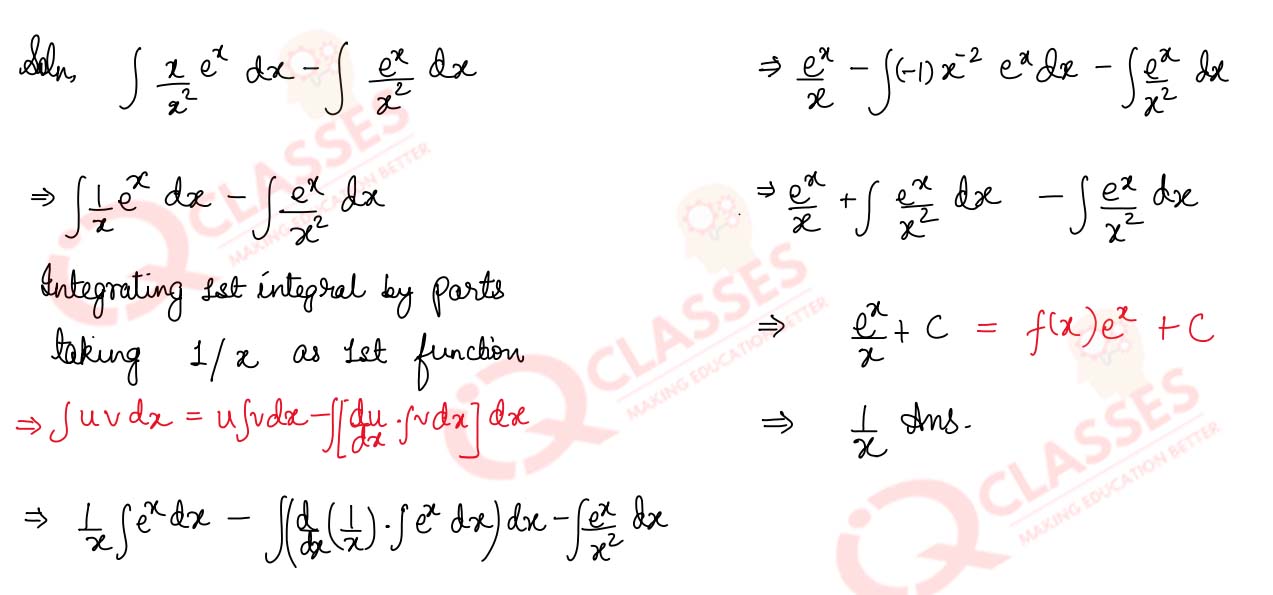 Soln, ∫ x/x² eˣ dx − ∫ eˣ/x² dx
⇒ ∫ 1/x eˣ dx − ∫ eˣ/x² dx
Integrating 1st integral by parts
taking 1/x as 1st function
⇒ ∫ u v dx = u ∫ v dx − ∫[du/dx . ∫ v dx] dx
⇒ 1/x ∫ eˣ dx − ∫(d/dx (1/x) . ∫ eˣ dx) dx − ∫ eˣ/x² dx
⇒ eˣ/x − ∫(−1) x⁻² eˣ dx − ∫ eˣ/x² dx
⇒ eˣ/x + ∫ eˣ/x² dx − ∫ eˣ/x² dx
⇒ eˣ/x + C = f(x) eˣ + C
⇒ 1/x Ans.
iQ CLASSES
MAKING EDUCATION BETTER
iQ CLASSES
MAKING EDUCATION BETTER
iQ CLASSES
MAKING EDUCATION BETTER